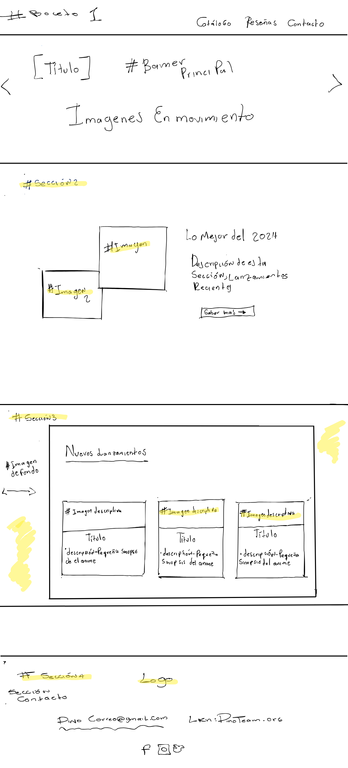 #Boceto 1
Catálogo Reseñas Contacto
[Título] #Banner
Principal
Imagenes En movimiento
#Sección2
#Imagen
#Imagen
2
Lo Mejor del 2024
Descripción de esta
Sección, Lanzamientos
Recientes
Saber mas →
#Sección3
#Imagen
de fondo
Nuevos Lanzamientos
#Imagen descriptiva
Título
·descripción Pequeña Sinopsis
de el anime
#Imagen descriptiva
Título
·descripción Pequeña
Sinopsis del anime
#Imagen descriptiva
Título
·descripción Pequeña
Sinopsis del anime
#Sección4
Sección
Contacto
Logo
Correo@gmail.com